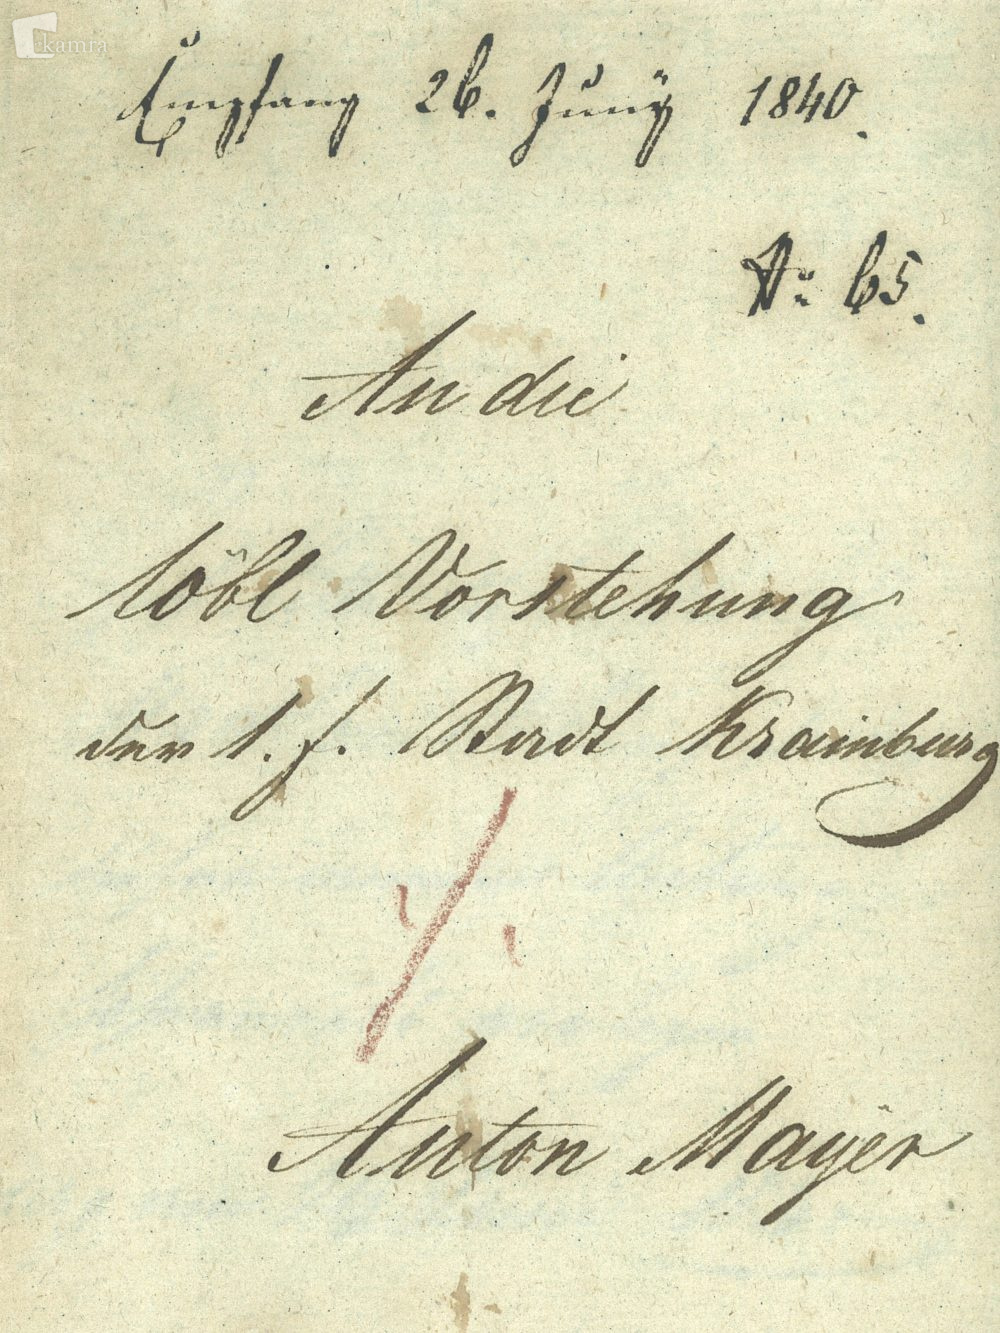 kamra
Empfang 26. Juny 1840.
N: 65.
An die
löbl Vorstehung
der l. f. Stadt Krainburg
Anton Mayer